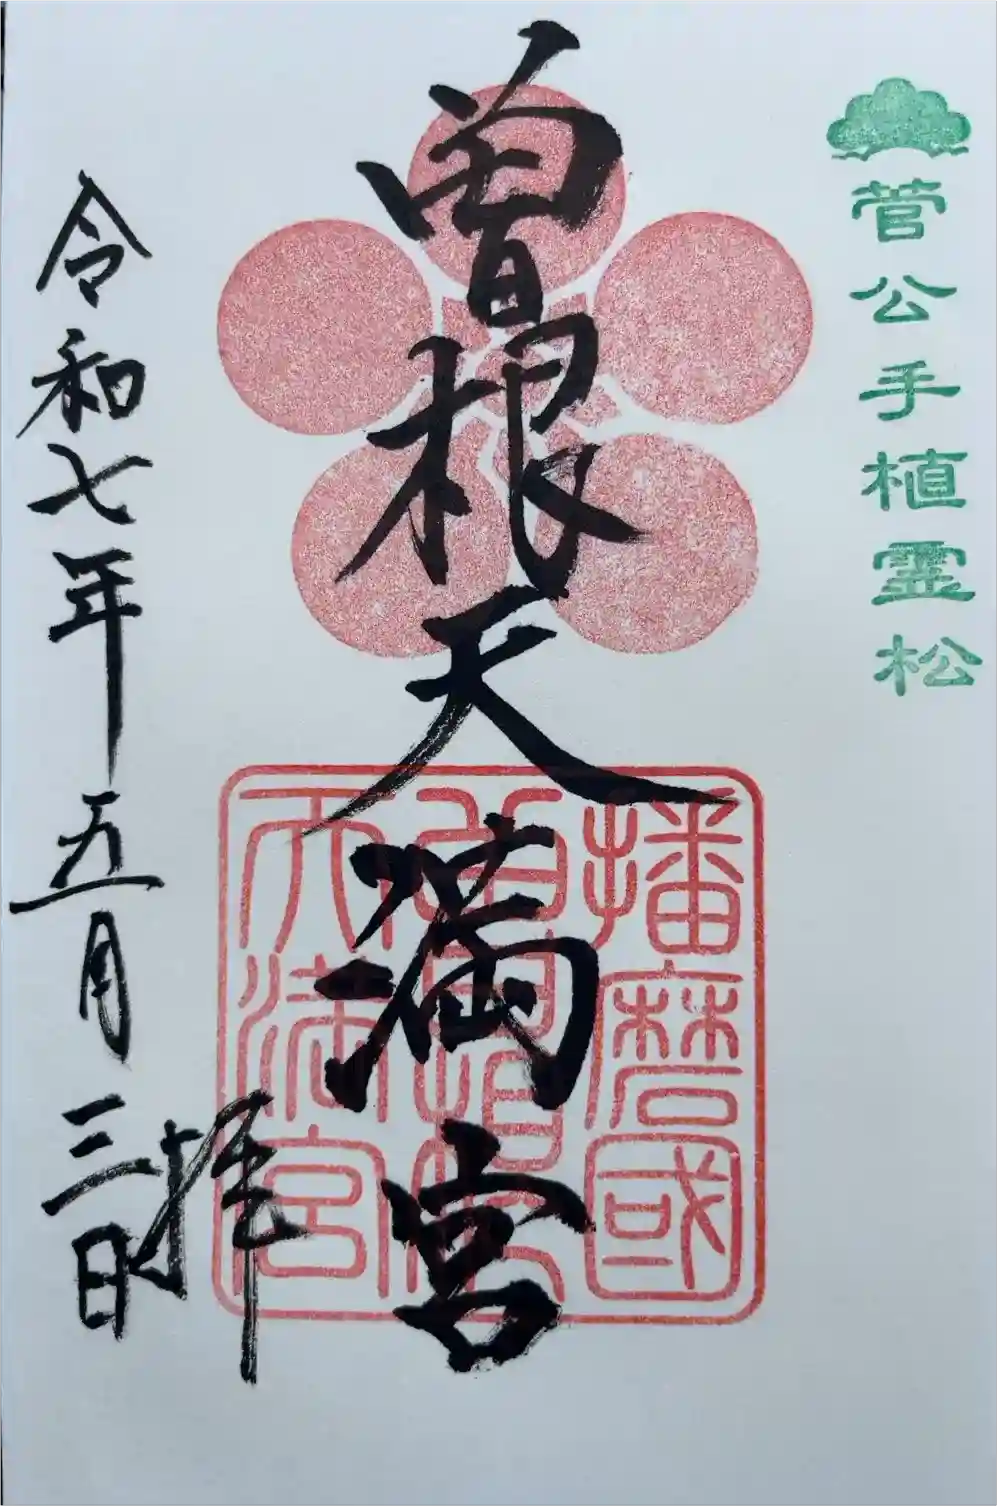 菅公手植霊松
曽根天満宮
播磨國
天満宮
令和七年五月三日
拝